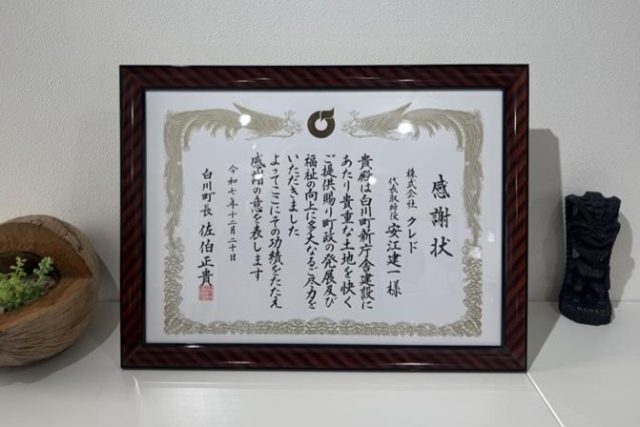 感謝状
株式会社 クレド
代表取締役 安江建一様
貴殿は白川町新庁舎建設に
あたり貴重な土地を快く
ご提供賜り町政の発展及び
福祉の向上に多大なるご尽力を
いただきました
よってここにその功績をたたえ
感謝の意を表します
令和七年十二月二十日
白川町長 佐伯正貴